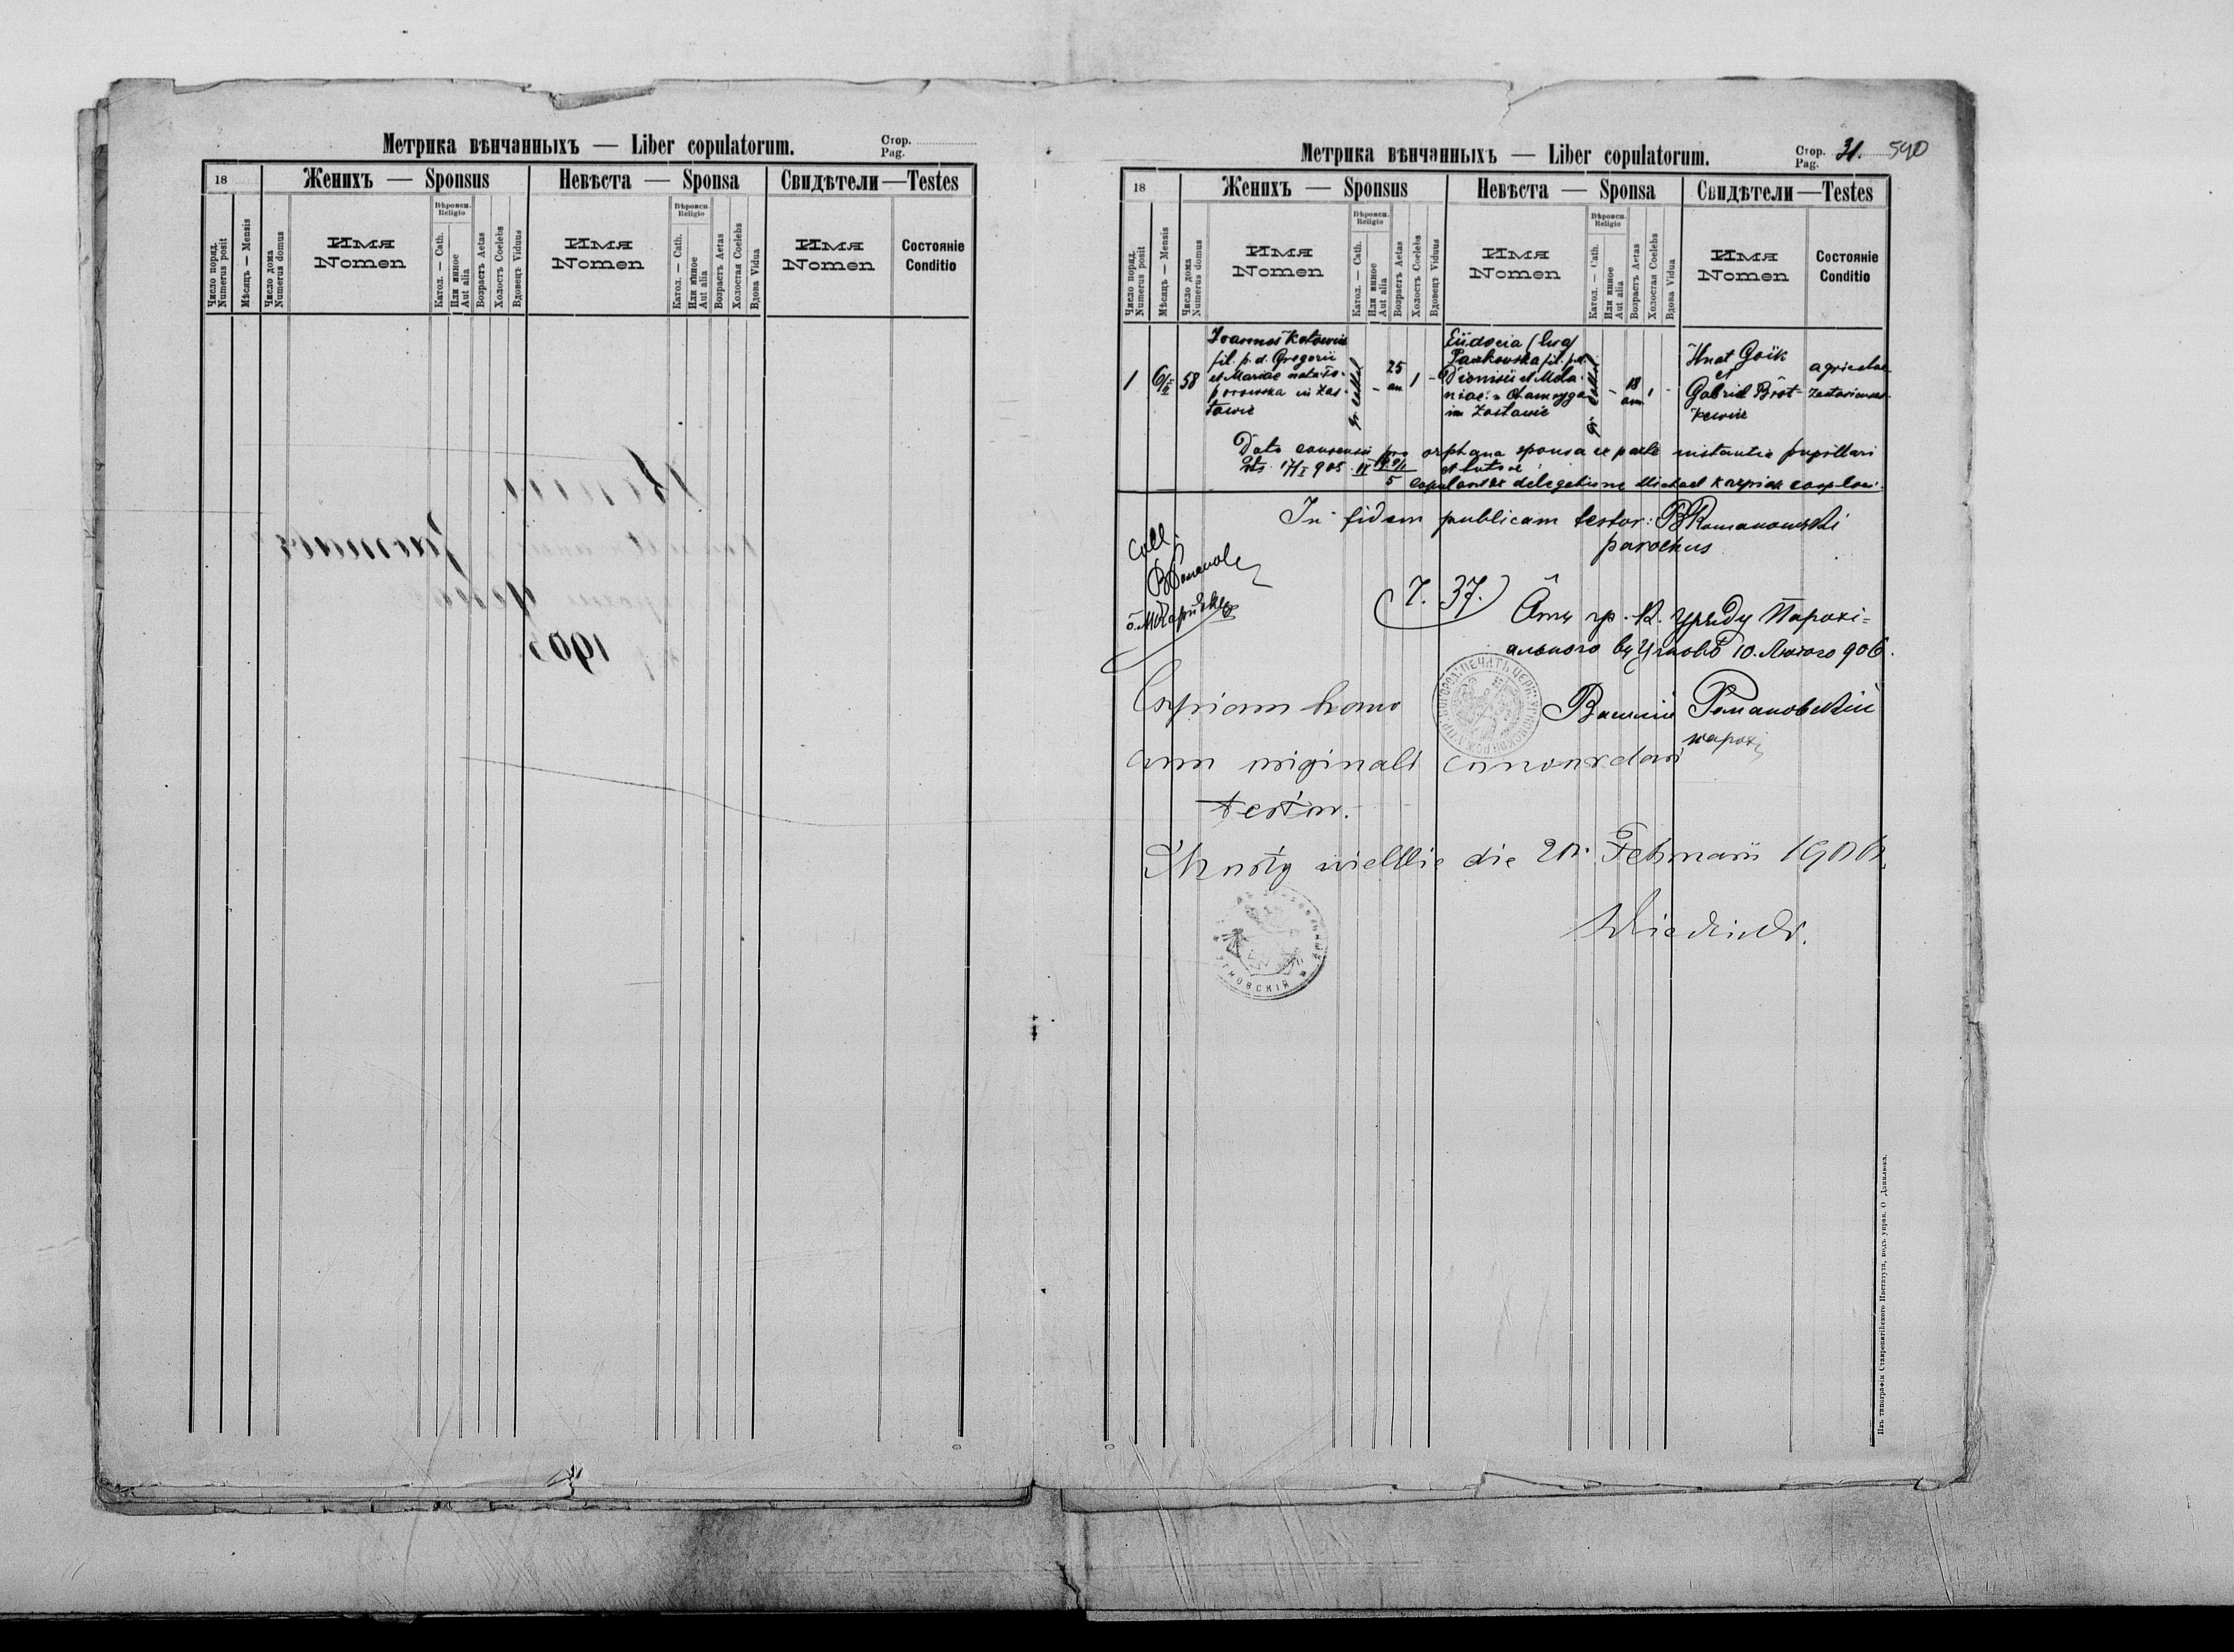 Метрика вѣнчанныхъ — Liber copulatorum.
Стор.
Pag.
18
Женихъ — Sponsus
Невѣста — Sponsa
Свидѣтели — Testes
Число поряд.
Numerus posit
Мѣсяцъ — Mensis
Число дома
Numerus domus
Имя
Nomen
Вѣроисп.
Religio
Катол. — Cath.
Или инное
Aut alia
Возрастъ Aetas
Холостъ Coelebs
Вдовецъ Viduus
Имя
Nomen
Вѣроисп.
Religio
Катол. — Cath.
Или инное
Aut alia
Возрастъ Aetas
Холостая Coelebs
Вдова Vidua
Имя
Nomen
Состояніе
Conditio
Метрика вѣнчанныхъ — Liber copulatorum.
Стор.
Pag.
31. 590
18
Женихъ — Sponsus
Невѣста — Sponsa
Свидѣтели — Testes
Число поряд.
Numerus posit
Мѣсяцъ — Mensis
Число дома
Numerus domus
Имя
Nomen
Вѣроисп.
Religio
Катол. — Cath.
Или инное
Aut alia
Возрастъ Aetas
Холостъ Coelebs
Вдовецъ Viduus
Имя
Nomen
Вѣроисп.
Religio
Катол. — Cath.
Или инное
Aut alia
Возрастъ Aetas
Холостая Coelebs
Вдова Vidua
Имя
Nomen
Состояніе
Conditio
1
58
Joannes Kotowicz
fil. p. d. Gregorii
et Mariae nata To-
porowska in Zas-
tawie
25
an
1
Eudocia
Paszkowska fil.
Dionisii et Mela-
niae
in Zastawie
18
an
1
Hnat Goik
et
Gabriel
agricolae
Dato consensu pro orphana sponsa ex parte instantia pupillari
et tutore
5 copulavit ex delegatione Michael
In fidem publicam testor: B Romanowski
parochus
Coll.
(T. 37.)
Отъ гр. к. уряду Парохі-
ального въ Угновѣ 10. Лютого 906.
Василій Романовскій
парохъ
Copiam hanc
cum originali concordare
testor.
die 20. Februarii 1906